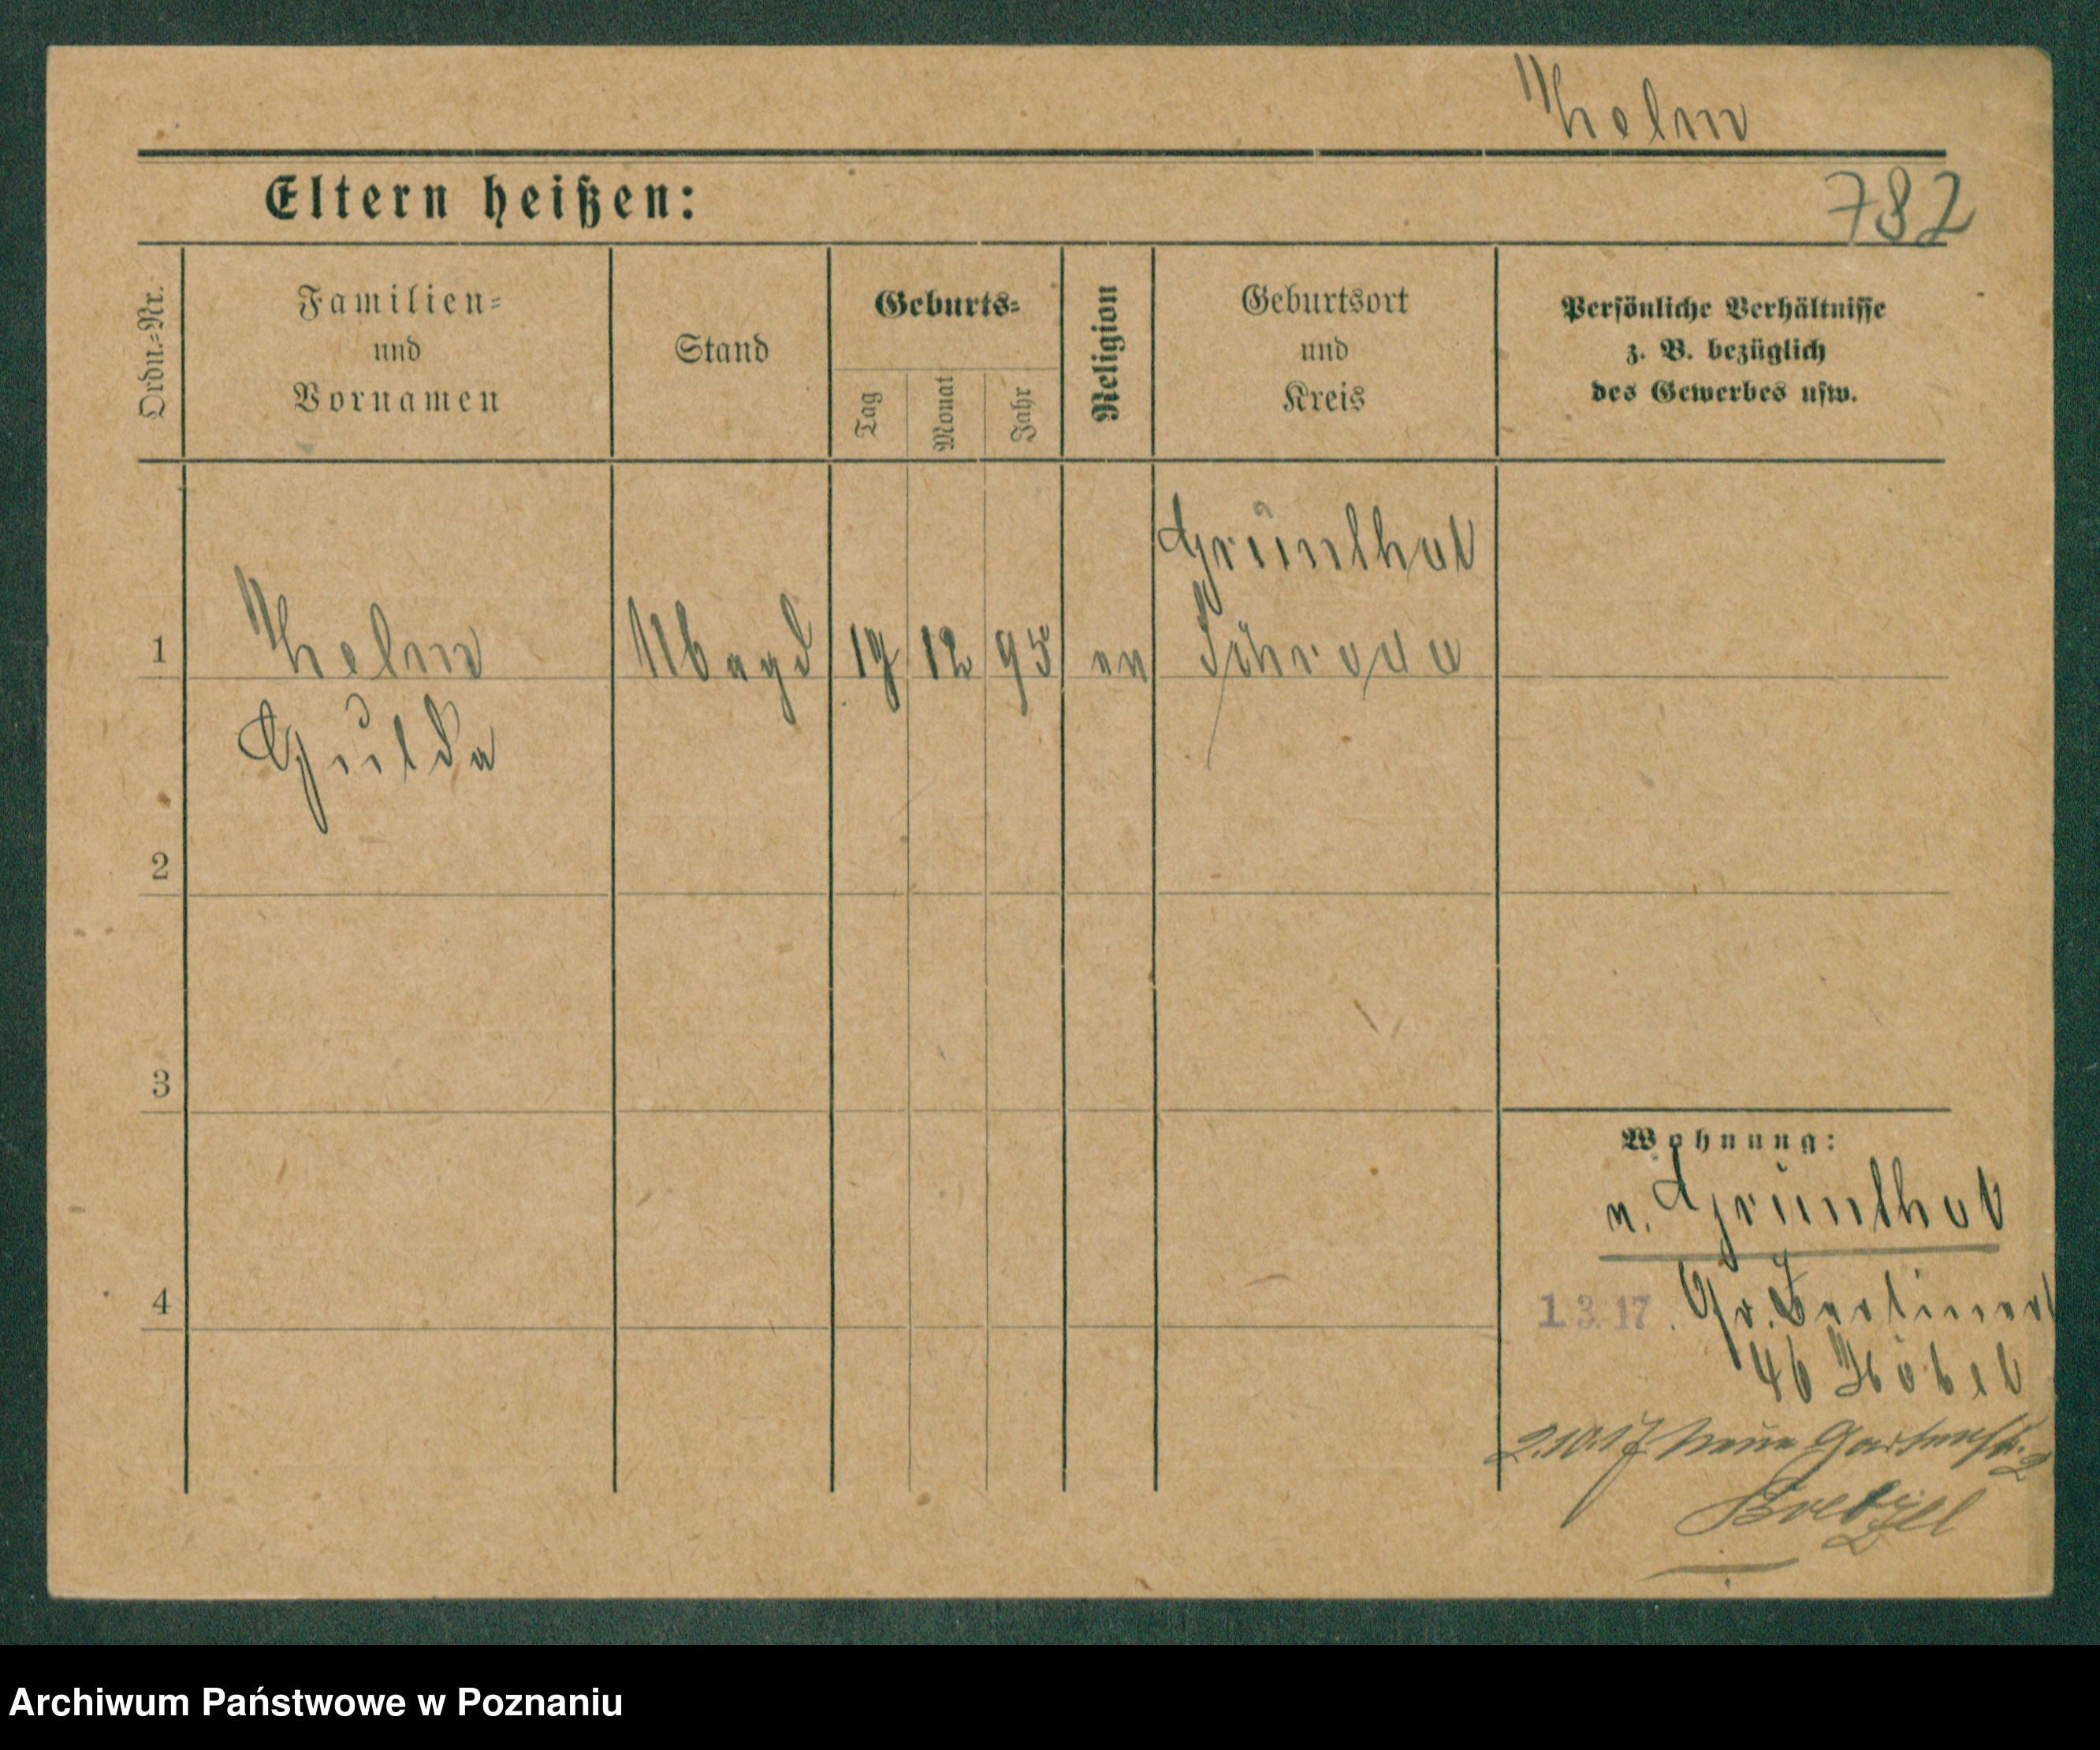 Helm
Eltern heißen:
782
Ordn.-Nr.
Familien-
und
Vornamen
Stand
Geburts-
Tag
Monat
Jahr
Religion
Geburtsort
und
Kreis
Persönliche Verhältnisse
z. B. bezüglich
des Gewerbes usw.
Grünthal
1
Helm
Magd
19
12
95
ev
Schroda
Hulda
2
3
4
Wohnung:
n. Grünthal
1.3.17. Gr. Berliner
46
2.10.17 Neue Gartenstr. 2
Archiwum Państwowe w Poznaniu